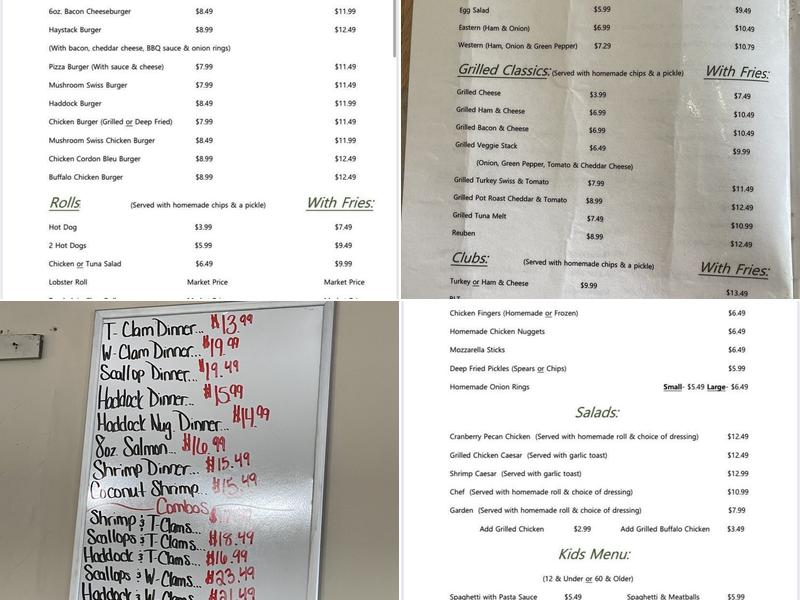 6oz. Bacon Cheeseburger $8.49 $11.99
Haystack Burger $8.99 $12.49
(With bacon, cheddar cheese, BBQ sauce & onion rings)
Pizza Burger (With sauce & cheese) $7.99 $11.49
Mushroom Swiss Burger $7.99 $11.49
Haddock Burger $8.49 $11.99
Chicken Burger (Grilled or Deep Fried) $7.99 $11.49
Mushroom Swiss Chicken Burger $8.49 $11.99
Chicken Cordon Bleu Burger $8.99 $12.49
Buffalo Chicken Burger $8.99 $12.49
Rolls (Served with homemade chips & a pickle) With Fries:
Hot Dog $3.99 $7.49
2 Hot Dogs $5.99 $9.49
Chicken or Tuna Salad $6.49 $9.99
Lobster Roll Market Price Market Price
Egg Salad $5.99 $9.49
Eastern (Ham & Onion) $6.99 $10.49
Western (Ham, Onion & Green Pepper) $7.29 $10.79
Grilled Classics: (Served with homemade chips & a pickle) With Fries:
Grilled Cheese $3.99 $7.49
Grilled Ham & Cheese $6.99 $10.49
Grilled Bacon & Cheese $6.99 $10.49
Grilled Veggie Stack $6.49 $9.99
(Onion, Green Pepper, Tomato & Cheddar Cheese)
Grilled Turkey Swiss & Tomato $7.99 $11.49
Grilled Pot Roast Cheddar & Tomato $8.99 $12.49
Grilled Tuna Melt $7.49 $10.99
Reuben $8.99 $12.49
Clubs: (Served with homemade chips & a pickle) With Fries:
Turkey or Ham & Cheese $9.99 $13.49
BLT
T-Clam Dinner... $13.99
W-Clam Dinner... $19.99
Scallop Dinner... $19.49
Haddock Dinner... $15.99
Haddock Nug. Dinner... $14.99
8oz. Salmon... $16.99
Shrimp Dinner... $15.49
Coconut Shrimp... $15.49
Combos
Shrimp & T-Clams...
Scallops & T-Clams... $18.49
Haddock & T-Clams... $16.99
Scallops & W-Clams... $23.49
Haddock & W-Clams... $21.49
Chicken Fingers (Homemade or Frozen) $6.49
Homemade Chicken Nuggets $6.49
Mozzarella Sticks $6.49
Deep Fried Pickles (Spears or Chips) $5.99
Homemade Onion Rings Small- $5.49 Large- $6.49
Salads:
Cranberry Pecan Chicken (Served with homemade roll & choice of dressing) $12.49
Grilled Chicken Caesar (Served with garlic toast) $12.49
Shrimp Caesar (Served with garlic toast) $12.99
Chef (Served with homemade roll & choice of dressing) $10.99
Garden (Served with homemade roll & choice of dressing) $7.99
Add Grilled Chicken $2.99 Add Grilled Buffalo Chicken $3.49
Kids Menu:
(12 & Under or 60 & Older)
Spaghetti with Pasta Sauce $5.49 Spaghetti & Meatballs $5.99